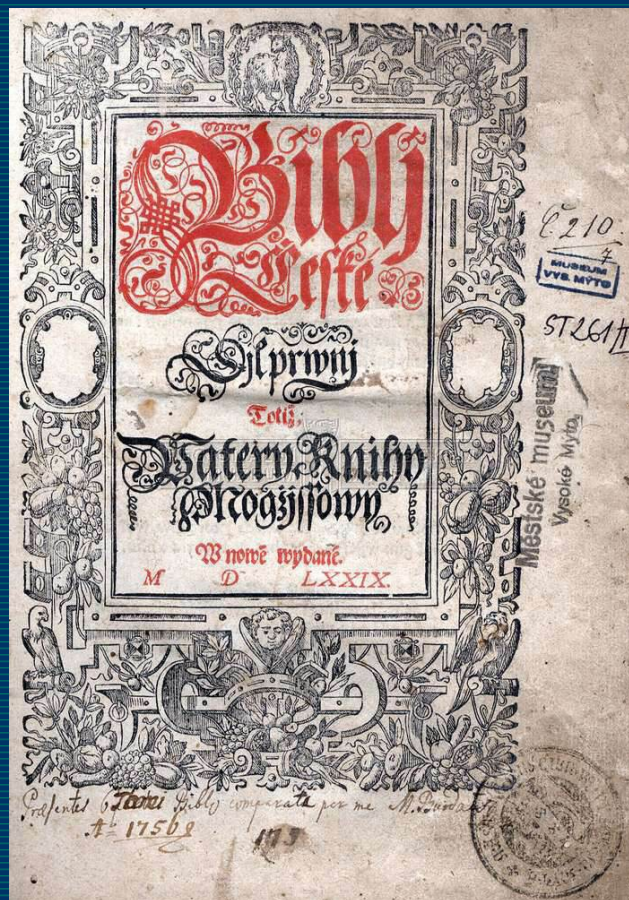 Biblj
České
Djl prwnj
Totiž,
Patery Knihy
Mogžjssowy
W nowě wydané.
M D LXXIX.
Č 210
7
MUSEUM
VYS. MÝTO
ST 261/
Městské museum
Vysoké Mýto
Præsentes 6 Bibly comparatæ per me M.
Aº 1756